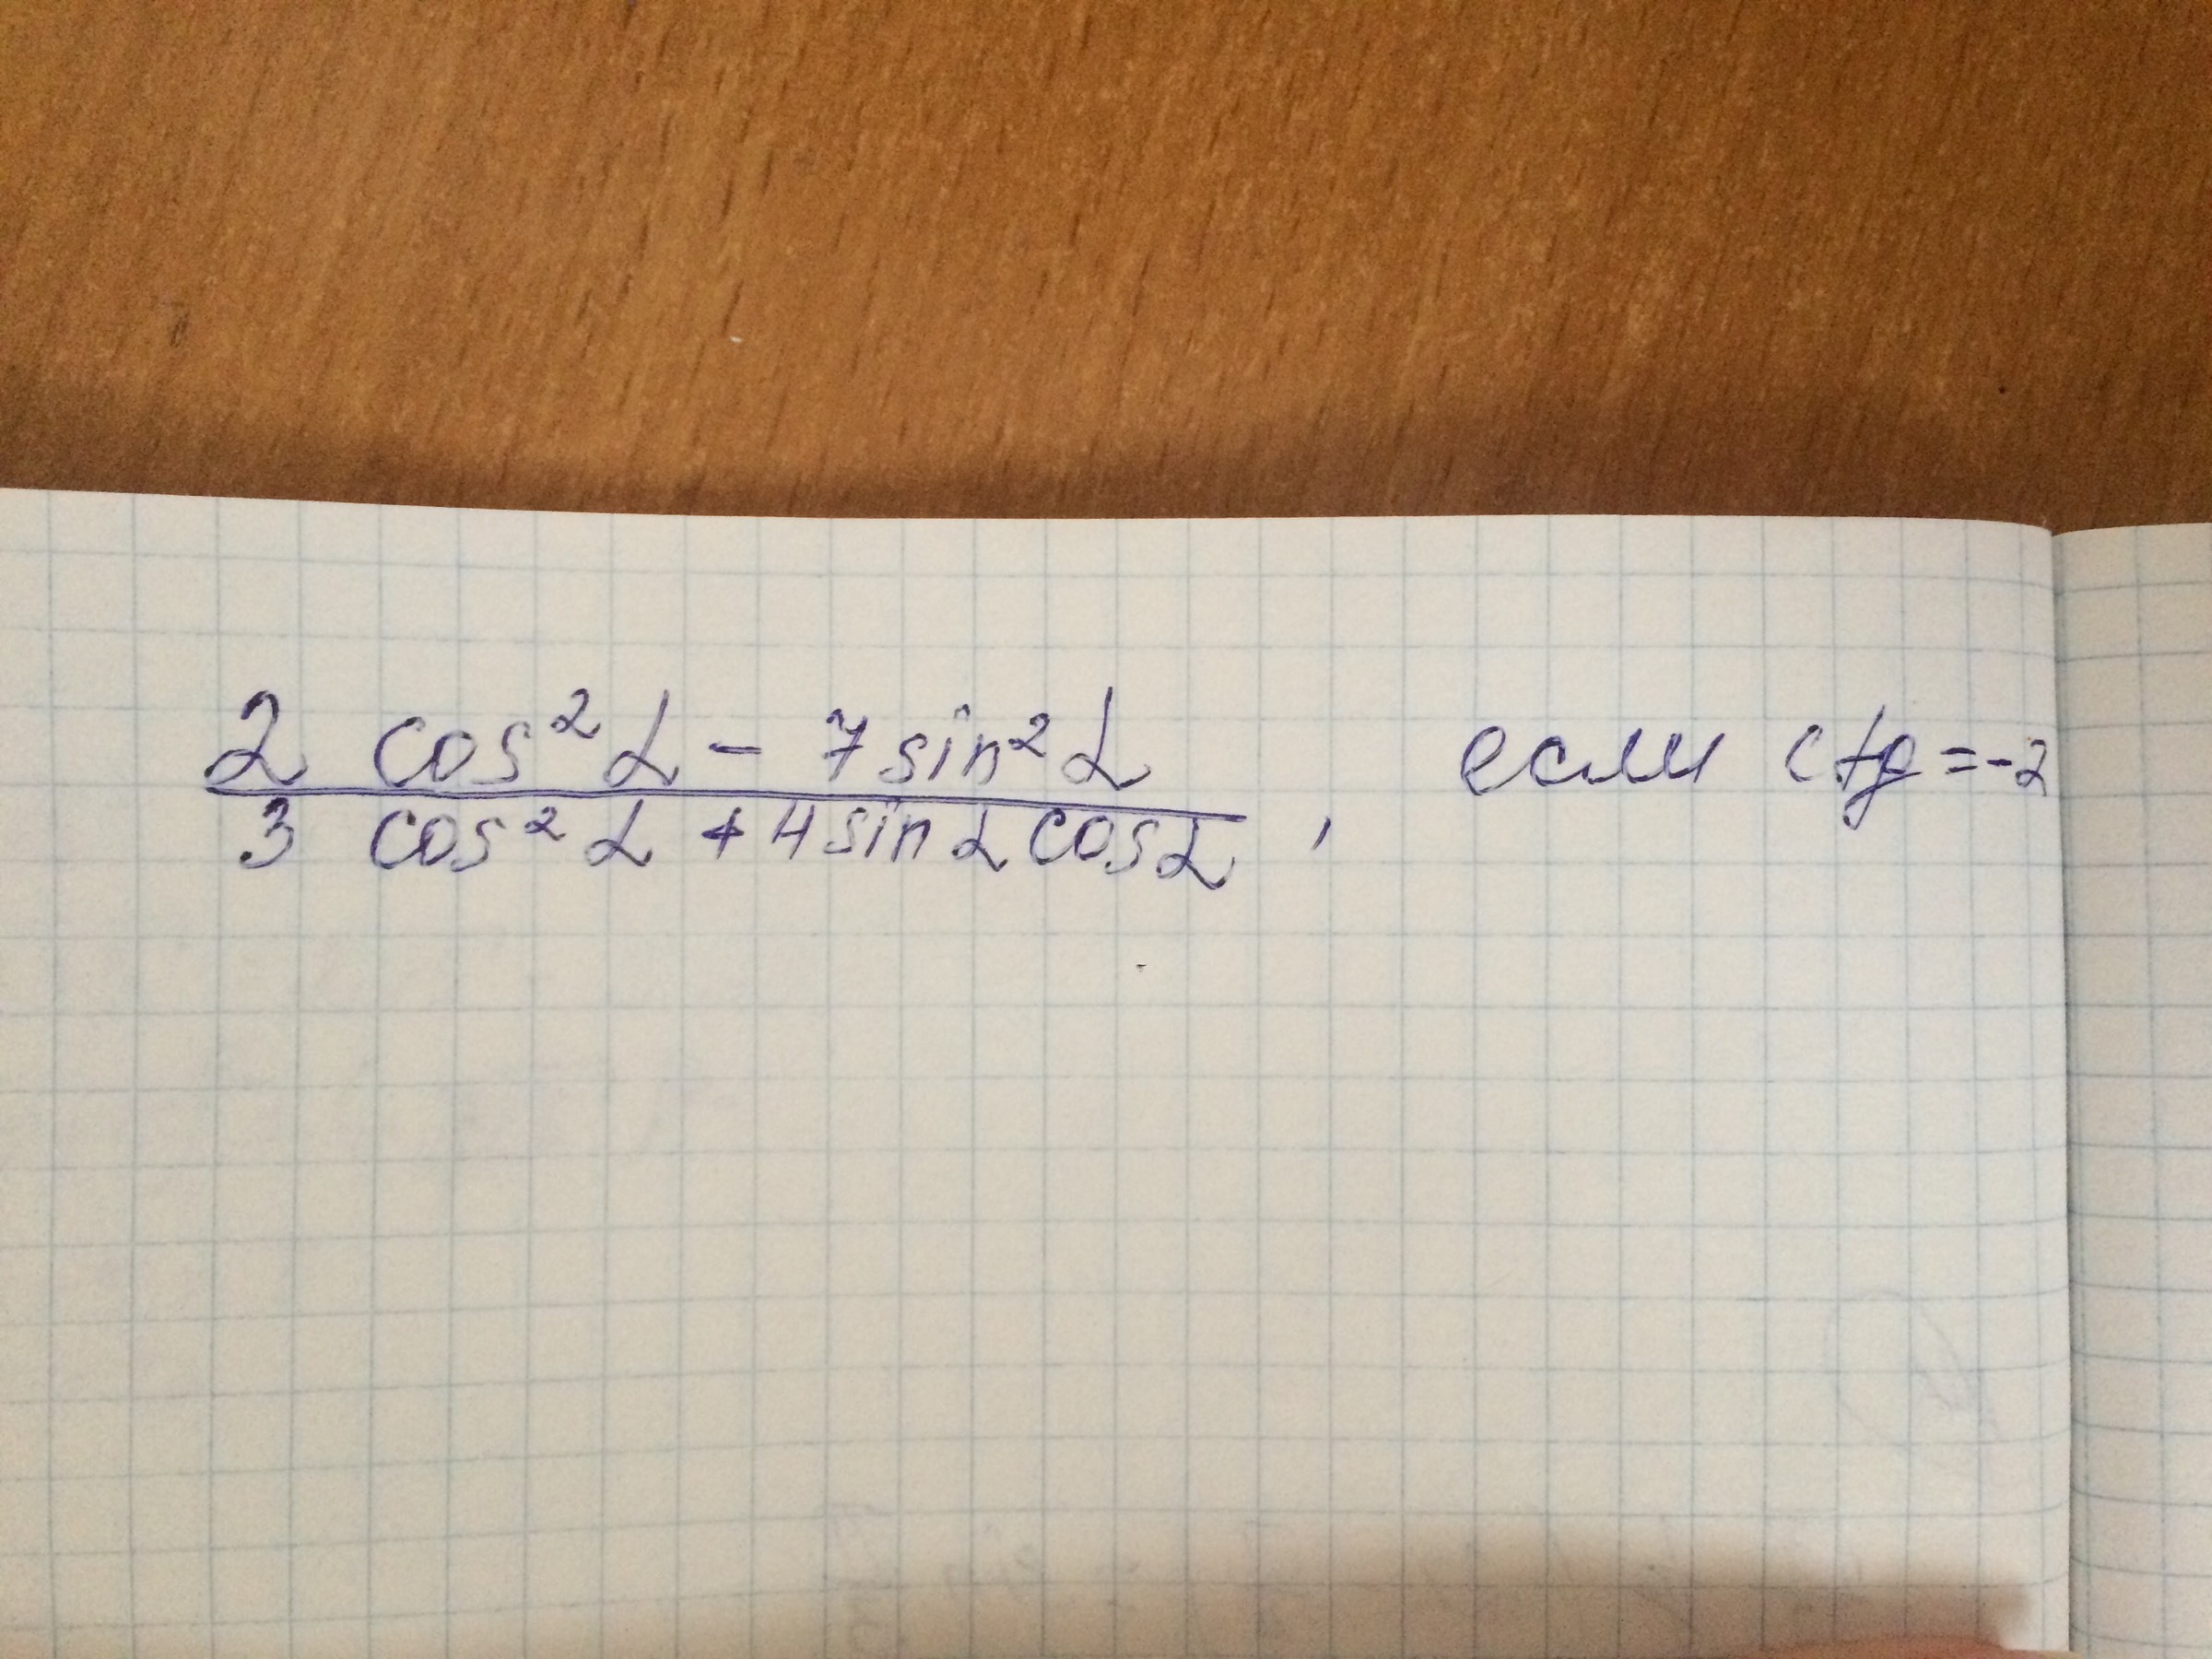 2 cos²α - 7 sin²α
3 cos²α + 4 sin α cos α , если ctg = -2